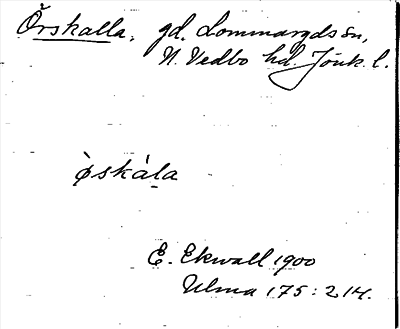 Örskalla, gd. Lommaryds sn,
N. Vedbo hd. Jönk. l.
ø̀skàla
E. Ekwall 1900
Ulma 175:214.